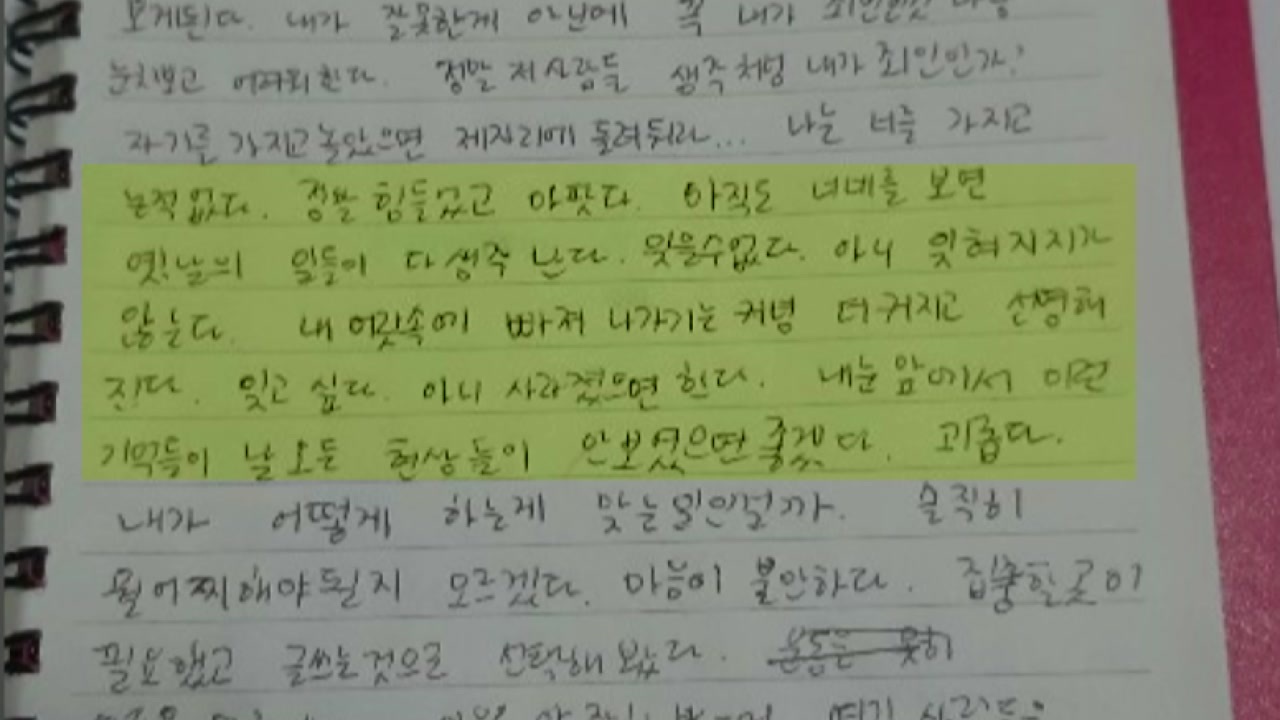 모게된다. 내가 잘못한게 아닌데 꼭 내가 죄인인것 마냥
눈치보고 어려워한다. 정말 저사람들 생각처럼 내가 죄인인가?
자기를 가지고 놀았으면 제자리에 돌려둬라... 나는 너를 가지고
논적 없다. 정말 힘들었고 아팟다. 아직도 너네를 보면
옛날의 일들이 다 생각 난다. 잊을수없다. 아니 잊혀지지가
않는다. 내 머릿속에 빠져 나가기는 커녕 더 커지고 선명해
진다. 잊고 싶다. 아니 사라졌으면 한다. 내눈 앞에서 이런
기억들이 날 모든 현상들이 안보였으면 좋겠다. 괴롭다.
내가 어떻게 하는게 맞는일인걸까. 솔직히
뭘 어찌해야될지 모르겠다. 마음이 불안하다. 집중할곳이
필요했고 글쓰는것으로 선택해 봤다. 운동은 못해